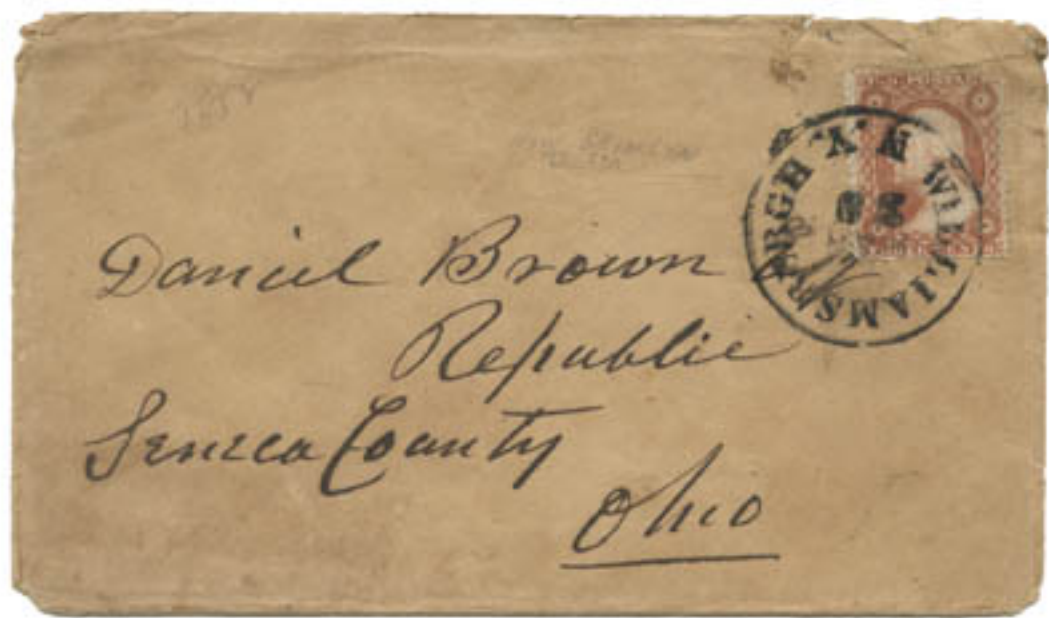 WILLIAMSBURGH N.Y.
Daniel Brown
Republic
Seneca County
Ohio